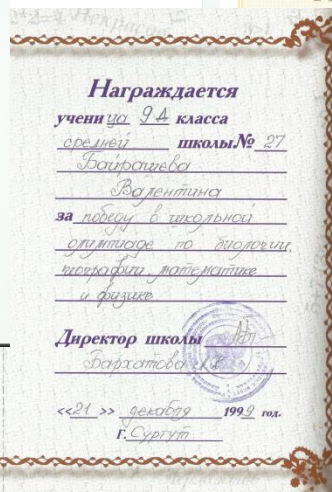 Награждается
учени ца 9А класса
средней школы № 27
Байрашева
Валентина
за победу в школьной
олимпиаде по биологии,
географии, математике
и физике
Директор школы
Бархатова
<<21 >> декабря 1999 год.
г. Сургут